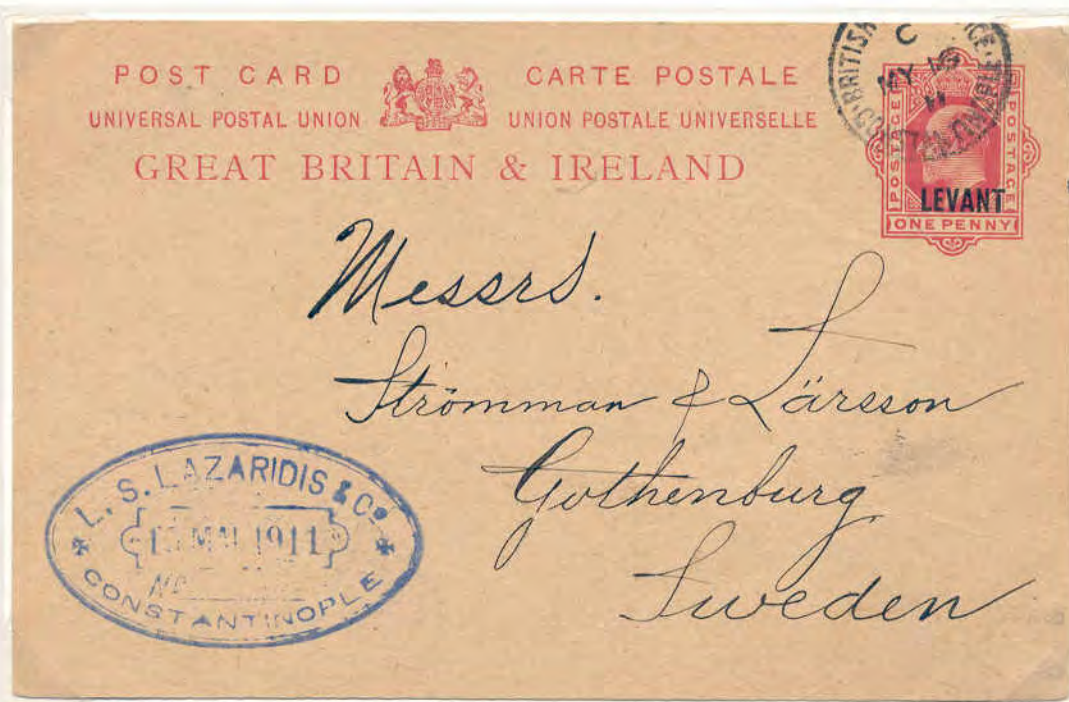 POST CARD CARTE POSTALE
UNIVERSAL POSTAL UNION UNION POSTALE UNIVERSELLE
GREAT BRITAIN & IRELAND
BRITISH
C
MY
11
POSTAGE POSTAGE
LEVANT
ONE PENNY
Messrs.
Strömman & Lärsson
Gothenburg
Sweden
L. S. LAZARIDIS & Co
MAI 1911
No
CONSTANTINOPLE